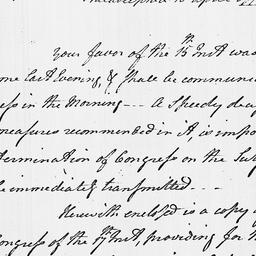 Philadelphia 10 April 1
your favor of the 15th Inst was
me last Evening, & shall be communic
ess in the Morning --- A Speedy de
measures recommended in it, is impo
termination of Congress on the Su
be immediately transmitted ---
Herewith enclosed is a copy
Congress of the Inst, providing for